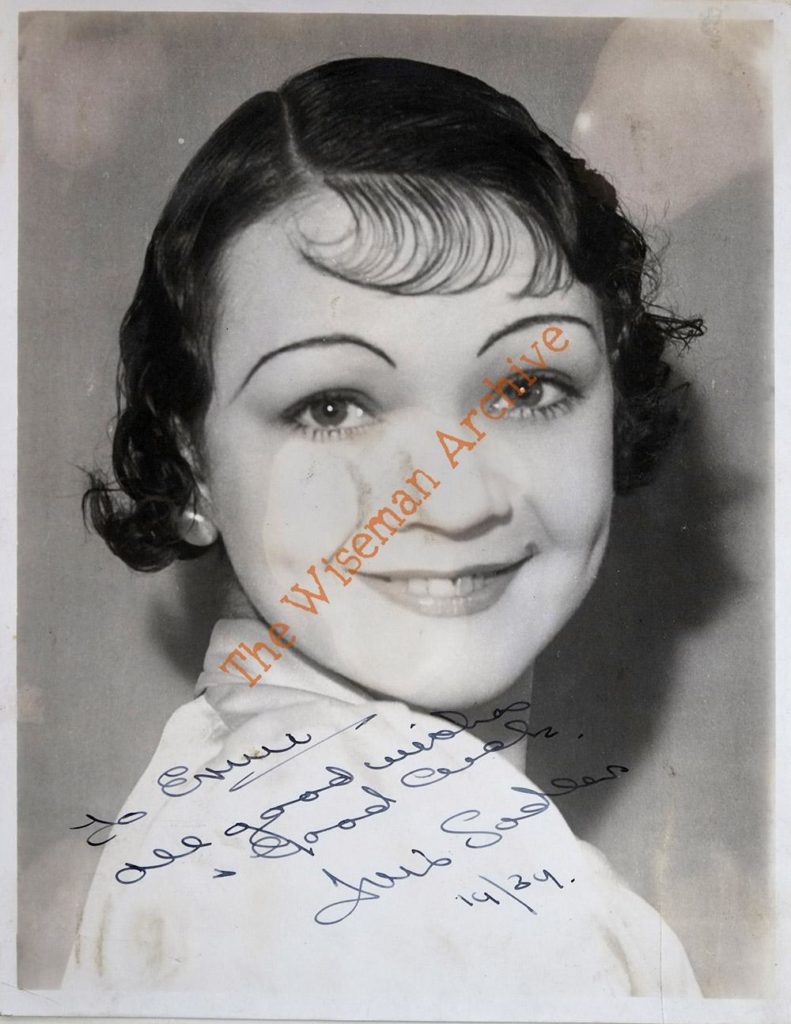 The Wiseman Archive
To Ernie
all good wishes
& Good Luck.
Iris Sadler
19/34.